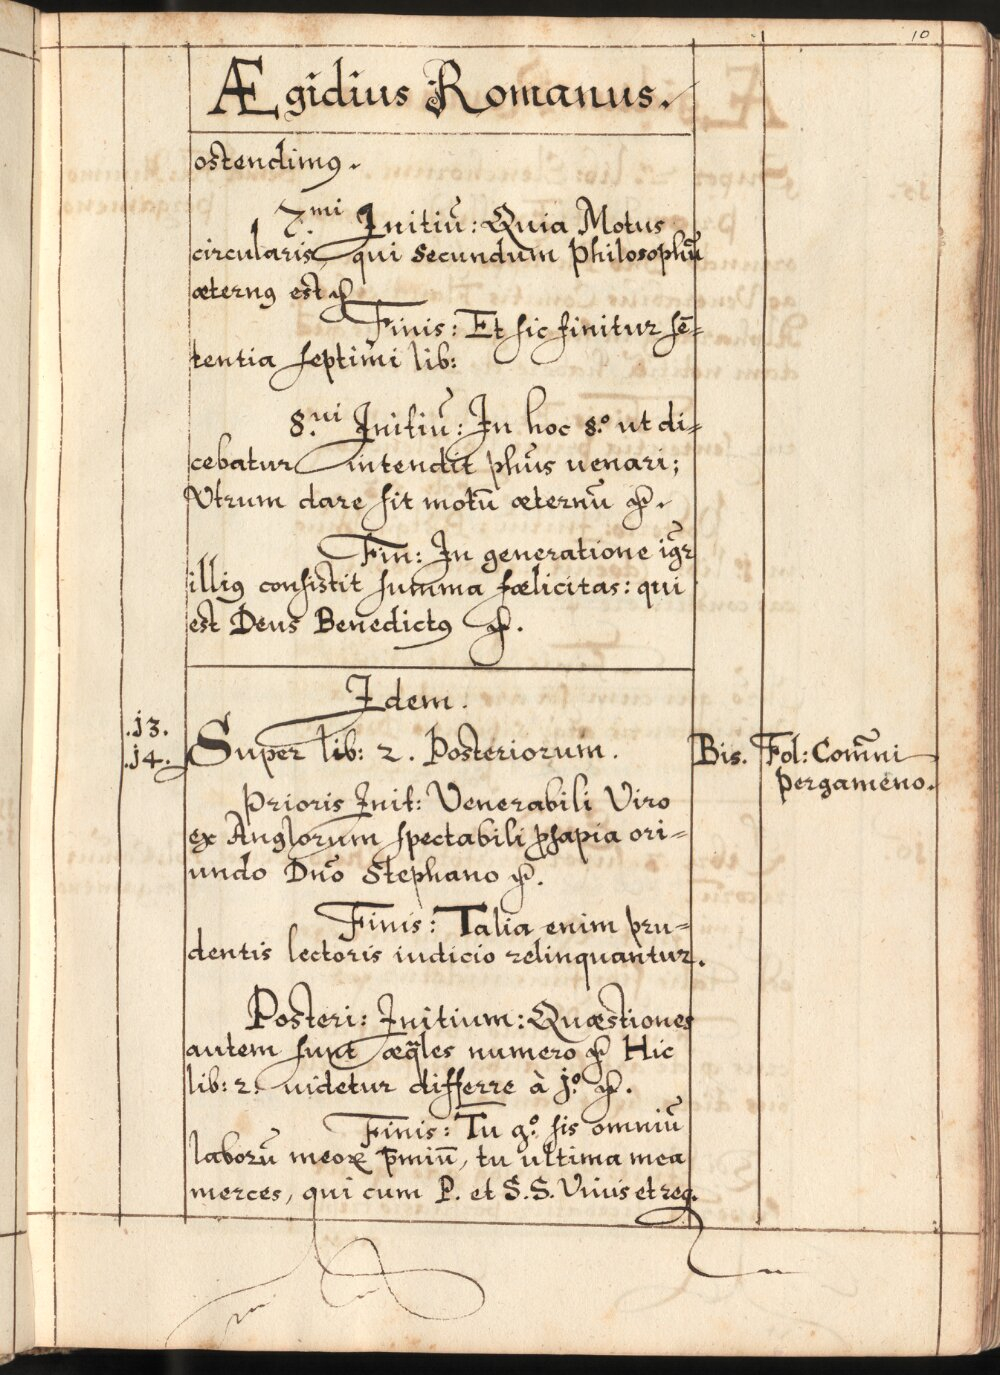 10
Ægidius Romanus.
ostendimꝯ.
7.mi Initiũ: Quia Motus
circularis, qui secundum Philosophũ
æternꝯ est &.
Finis: Et sic finitur sē=
tentia septimi lib:
8.ui Initiũ: In hoc 8.º ut di=
cebatur intendit phũs uenari;
Vtrum dare sit motũ æternũ &.
Fin: In generatione igr̃
illiꝯ consistit summa fœlicitas: qui
est Deus Benedictꝯ &.
Idem.
.j3.
.j4. Super lib: 2. Posteriorum. Bis. Fol: Com̃ni
pergameno.
Prioris Init: Venerabili Viro
ex Anglorum spectabili ꝓsapia ori=
undo Dño Stephano &.
Finis: Talia enim pru=
dentis lectoris iudicio relinquantur.
Posteri: Initium: Quæstiones
autem sunt æq̃les numero & Hic
lib: 2. uidetur differre à j.º &.
Finis: Tu g.º sis omniũ
laborũ meoꝝ p̃miũ, tu ultima mea
merces, qui cum P. et S.S. Viuis et reg.